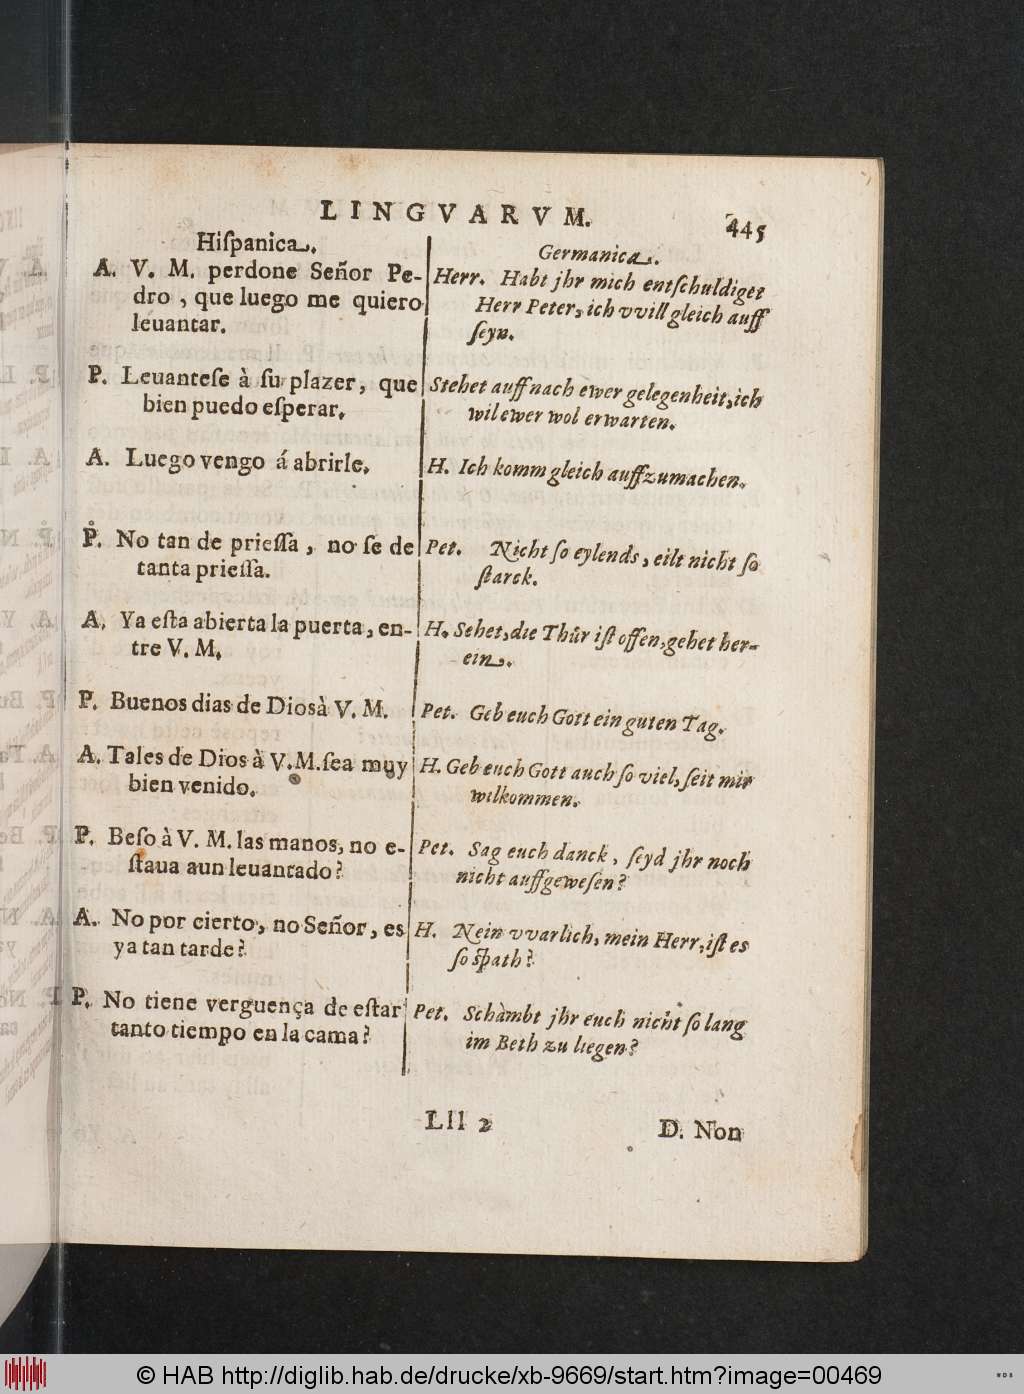 LINGVARVM.
445
Hiſpanica.
A. V. M. perdone Señor Pe-
dro, que luego me quiero
leuantar.
P. Leuanteſe à ſu plazer, que
bien puedo eſperar.
A. Luego vengo á abrirle.
P. No tan de prieſſa, no ſe de
tanta prieſſa.
A. Ya eſta abierta la puerta, en-
tre V. M.
P. Buenos dias de Dios à V. M.
A. Tales de Dios à V. M. ſea muy
bien venido.
P. Beſo à V. M. las manos, no e-
ſtaua aun leuantado?
A. No por cierto, no Señor, es
ya tan tarde?
P. No tiene verguença de eſtar
tanto tiempo en la cama?
Germanica.
Herr. Habt jhr mich entſchuldiget
Herr Peter, ich vvill gleich auff
ſeyn.
Stehet auff nach ewer gelegenheit, ich
wil ewer wol erwarten.
H. Ich komm gleich auffzumachen.
Pet. Nicht ſo eylends, eilt nicht ſo
ſtarck.
H. Sehet, die Thür iſt offen, gehet her-
ein.
Pet. Geb euch Gott ein guten Tag.
H. Geb euch Gott auch ſo viel, ſeit mir
wilkommen.
Pet. Sag euch danck, ſeyd jhr noch
nicht auffgeweſen?
H. Nein vvarlich, mein Herr, iſt es
ſo ſpath?
Pet. Schàmbt jhr euch nicht ſo lang
im Beth zu liegen?
Lll 2
D. Non
© HAB http://diglib.hab.de/drucke/xb-9669/start.htm?image=00469